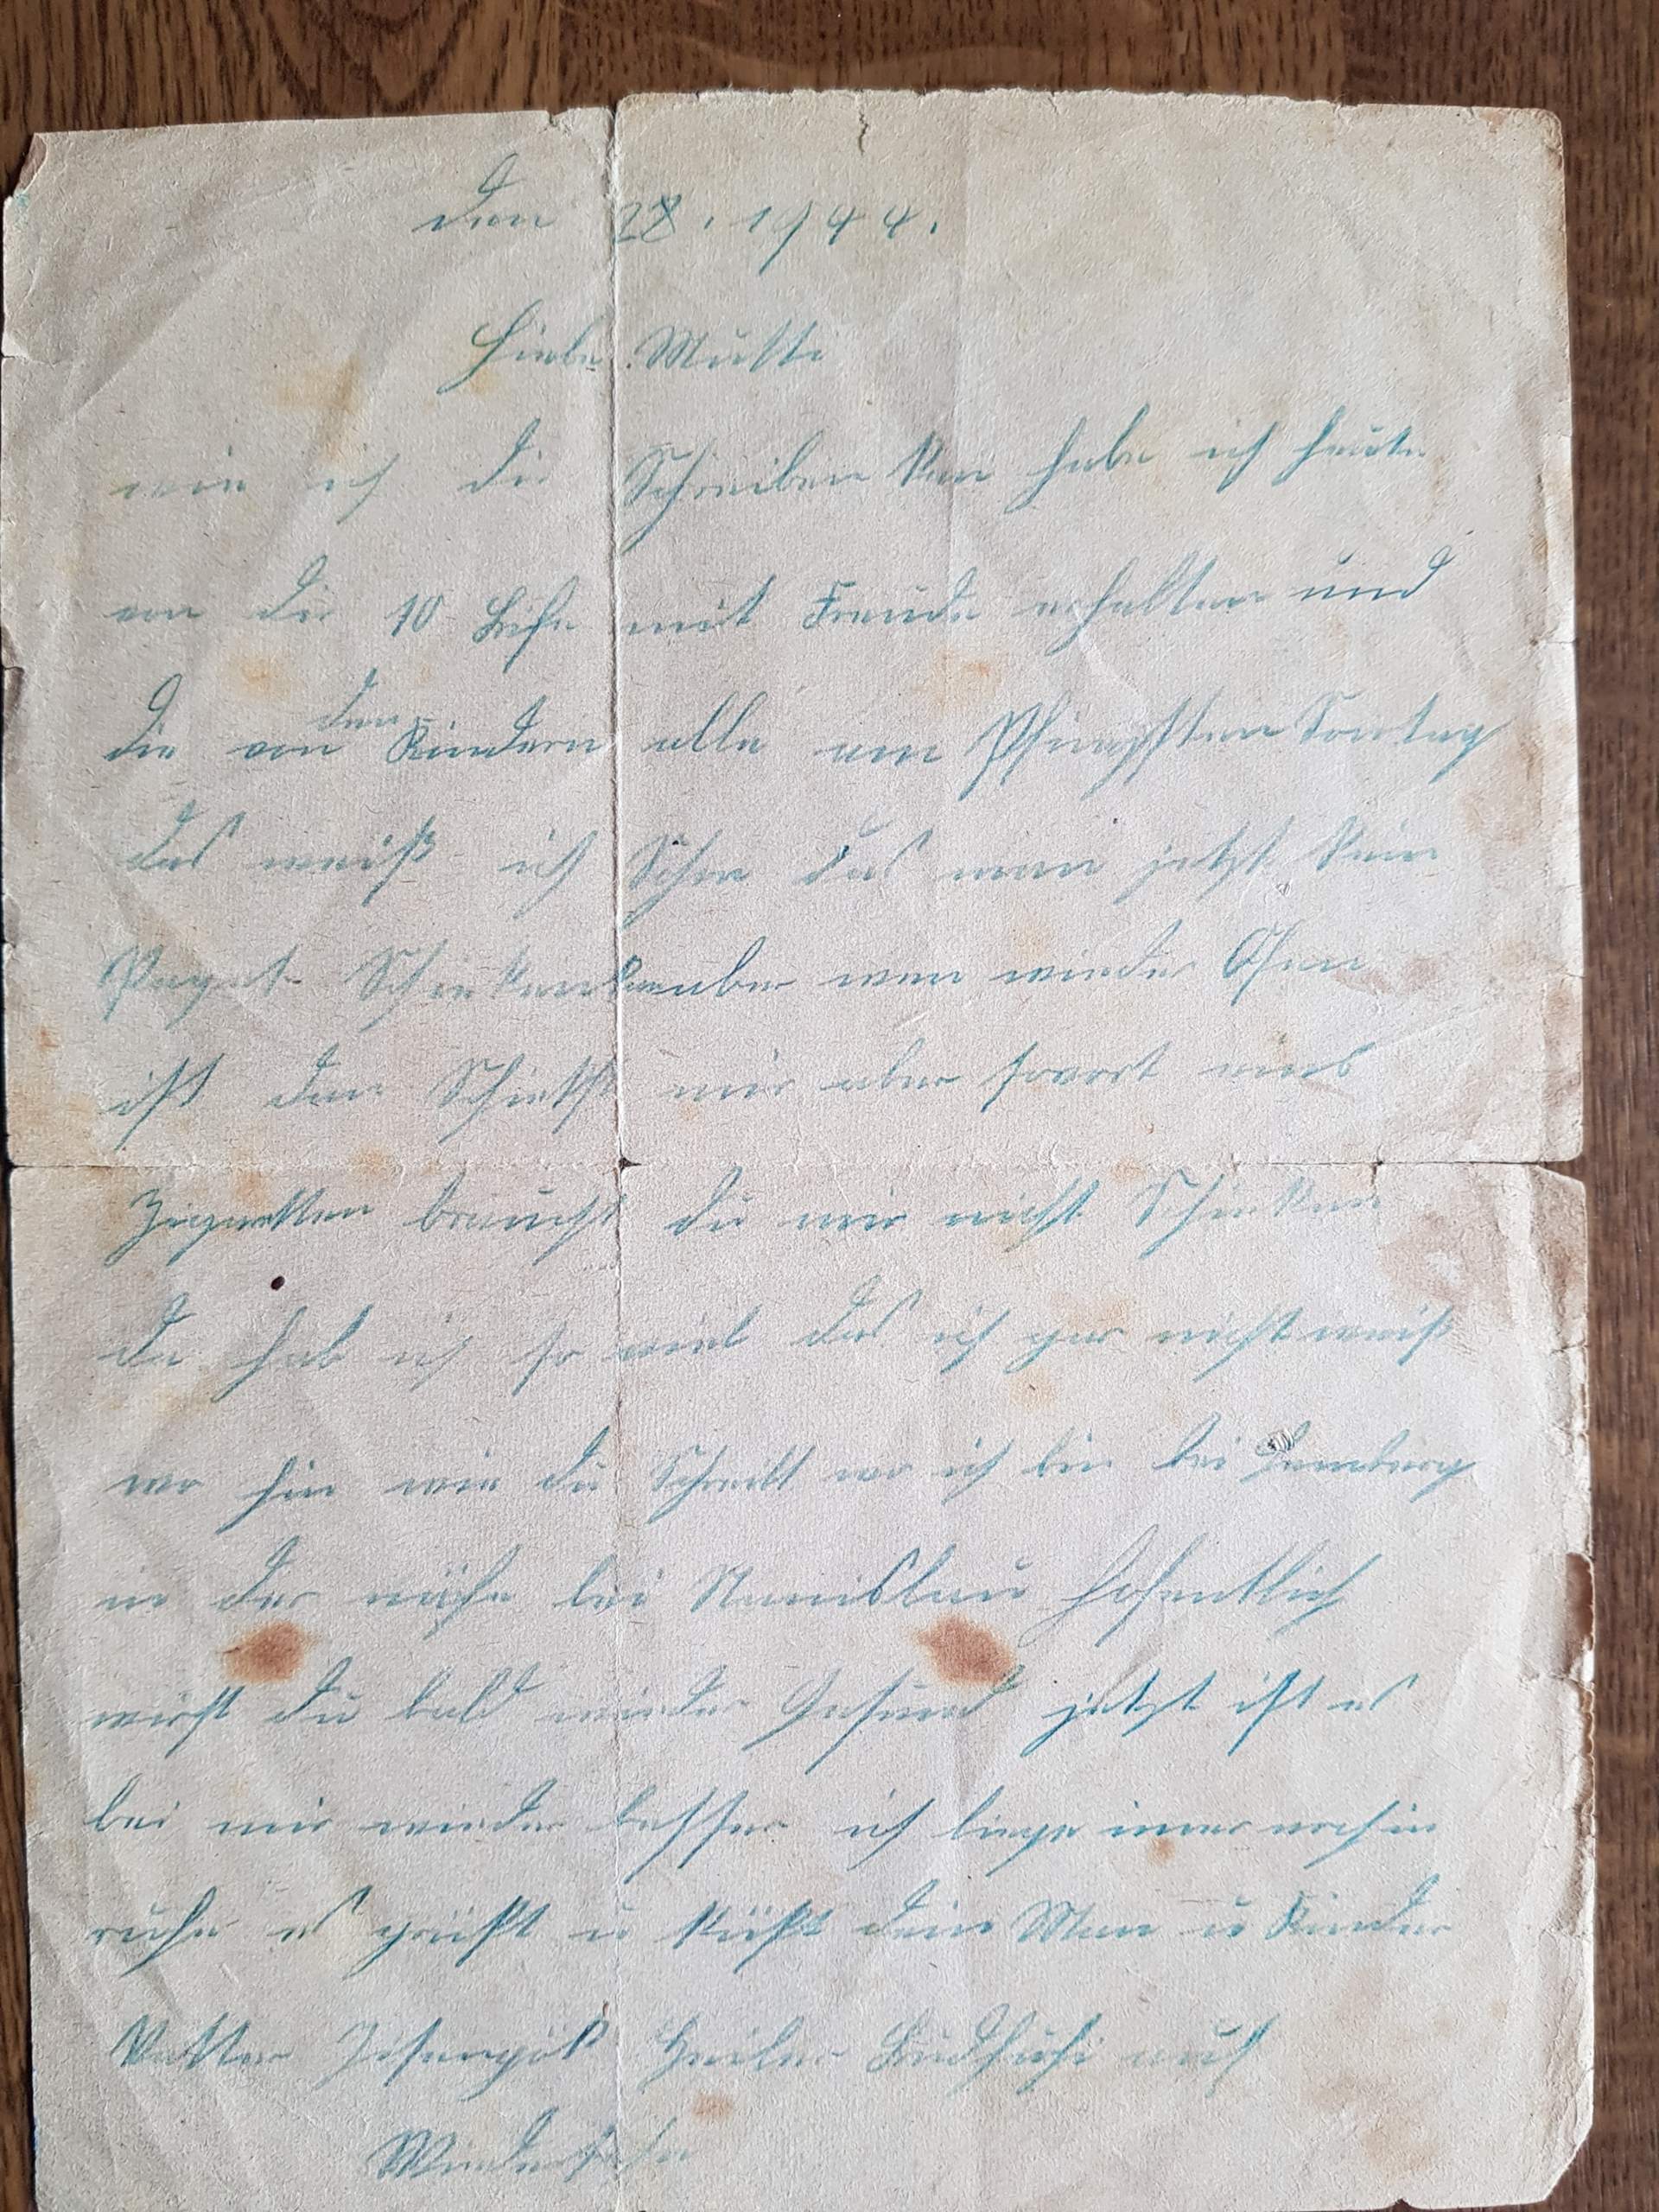 den 28. 1944.
Liebe Mutti
wie ich dir Schreiben kan habe ich heute
von dir 10 Brife mit Freude erhalten und
die von den Kindern alle am Pfingsten Sontag
das weiß ich Schon das man jetzt kein
Paget Schicken kan aber wen wieder Ofen
ist dan Schickst mir aber sovort was
Zigaretten brauchst du mir nicht Schicken
da hab ich so viel das ich gar nicht weiß
wo hin wie du Schreibst wo ich bin bei Lemberg
in der nähe bei Stanislau hofentlich
wirst du bald wieder Gesund jetzt ist es
bei mir wieder besser ich liege imer noch in
ruhe es grüßt u küßt dein Man u Kinder
Vatter auf
Wiedersehn